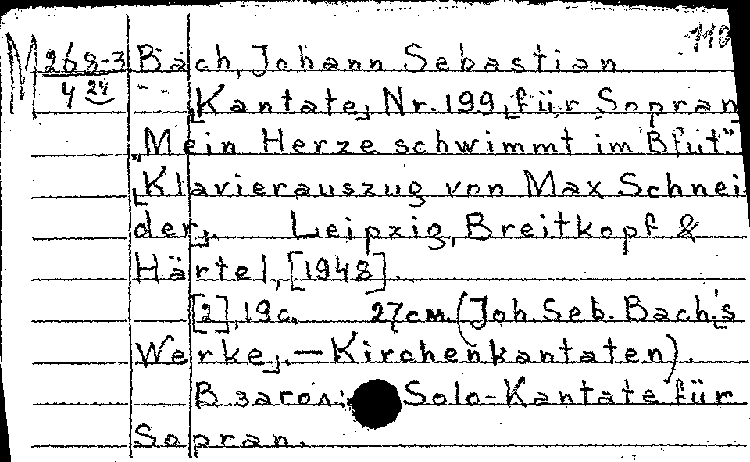 110
M 268-3 Bach, Johann Sebastian
4 24
[Kantate] Nr. 199 [für Sopran]
"Mein Herze schwimmt im Blut".
[Klavierauszug von Max Schnei-
der]. Leipzig, Breitkopf &
Härtel, [1948].
[2], 19 с. 27см. (Joh. Seb. Bach[s]
Werke]. — Kirchenkantaten).
В загол: Solo-Kantate für
Sopran.